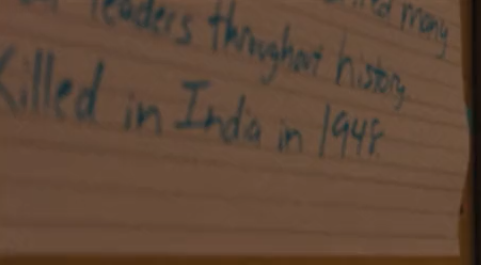 many
leaders throughout history
Killed in India in 1948